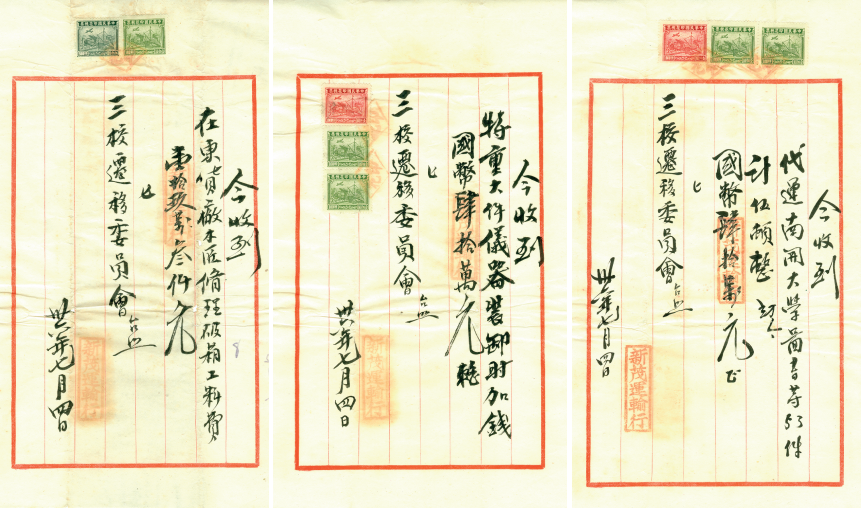 今收到
在東貨廠木匠修理破箱工料費
壹拾玖萬叁仟元
三校遷移委員會台照
卅六年七月四日
今收到
特重大件儀器裝卸附加錢
國幣肆拾萬元整
三校遷移委員會台照
卅六年七月四日
今收到
代運南開大學圖書等53件
計伍頓整
國幣肆拾萬元正
三校遷移委員會台照
卅六年七月四日
新茂運輸行